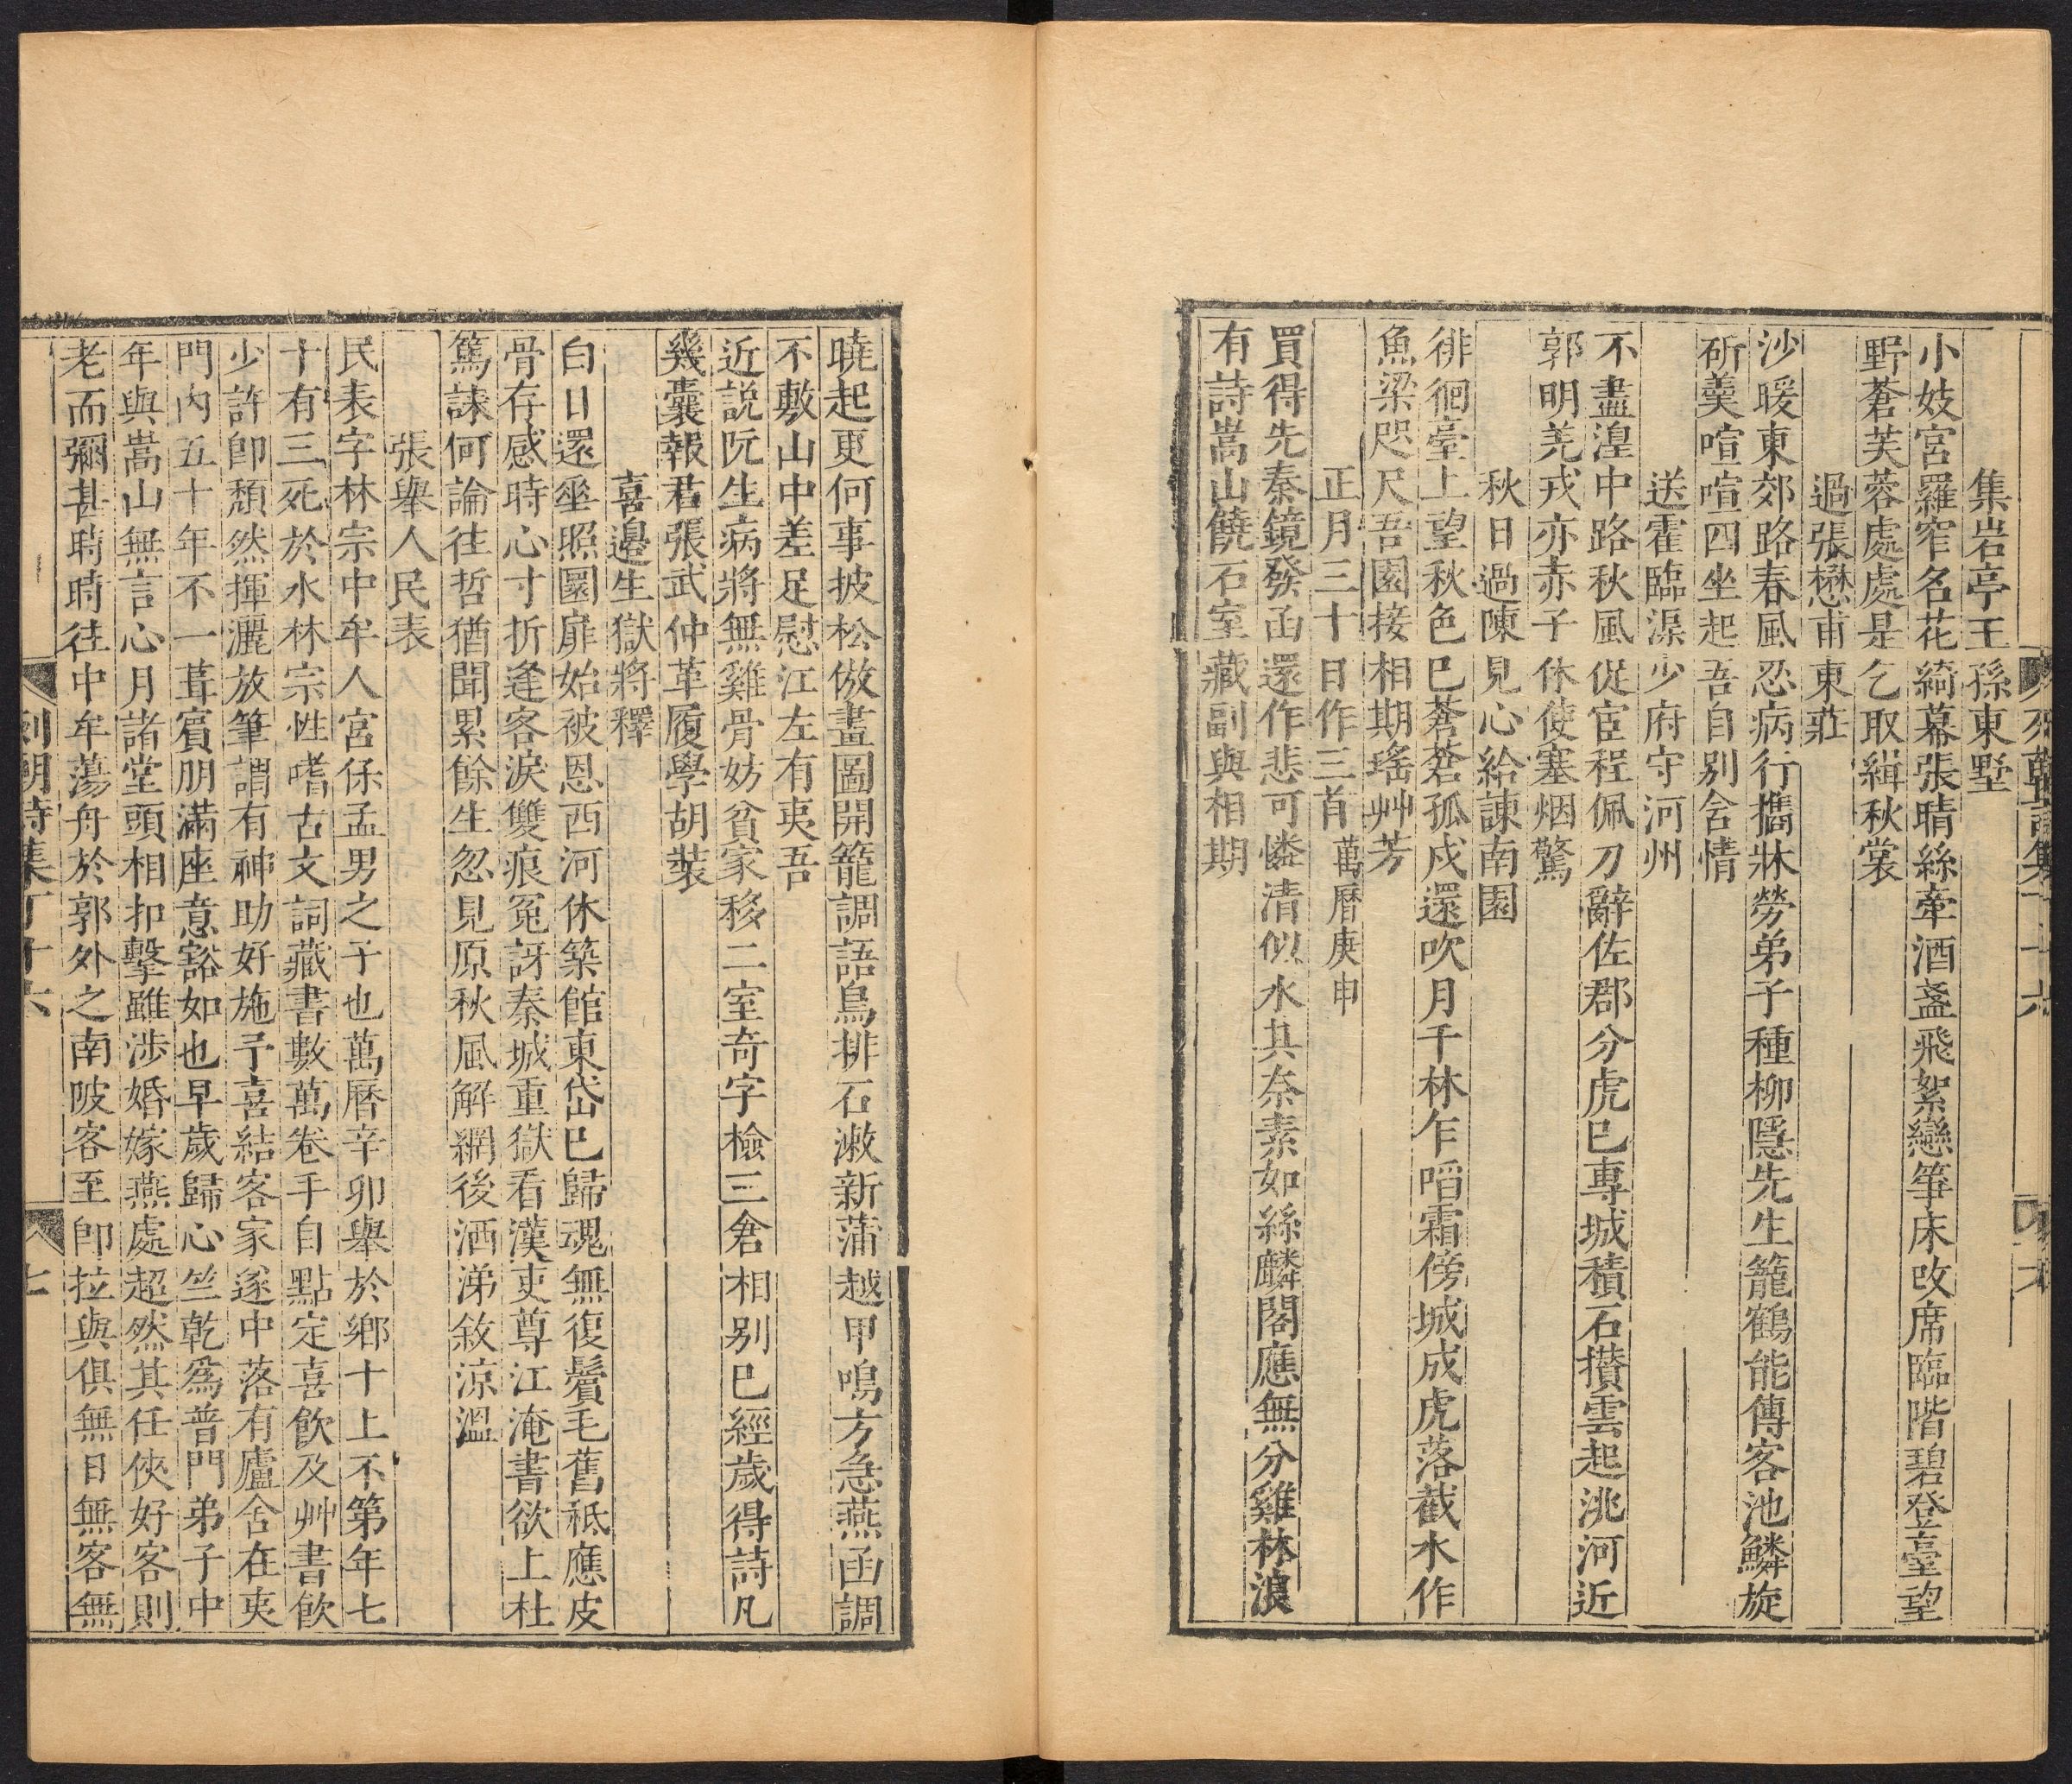 集岩亭王孫東墅
小妓宮羅窄名花綺幕張晴絲牽酒盞飛絮戀箏床改席臨階碧登臺望
野蒼芙蓉處處是乞取緝秋裳
過張懋甫東莊
沙暖東郊路春風忍病行攜牀勞弟子種柳隱先生籠鶴能傳客池鱗旋
斫羹喧喧四坐起吾自別含情
送霍臨渠少府守河州
不盡湟中路秋風從宦程佩刀辭佐郡分虎已專城積石攢雲起洮河近
郭明羌戎亦赤子休使塞烟驚
秋日過陳見心給諫南園
徘徊臺上望秋色已蒼蒼孤戍還吹月千林乍㗖霜傍城成虎落截水作
魚梁咫尺吾園接相期瑤艸芳
正月三十日作三首萬曆庚申
買得先秦鏡發函還作悲可憐清似水其奈素如絲麟閣應無分雞林浪
有詩嵩山饒石室藏副與相期
曉起更何事披松倣畫圖開籠調語鳥排石漱新蒲越甲鳴方急燕函調
不敷山中差足慰江左有夷吾
近説阮生病將無雞骨妨貧家移二室奇字檢三倉相別已經歲得詩凡
幾囊報君張武仲革履學胡裝
喜邊生獄將釋
白日還坐照圜扉始被恩西河休築館東岱已歸魂無復鬢毛舊秪應皮
骨存感時心寸折逢客淚雙痕冤訝秦城重獄看漢吏尊江淹書欲上杜
篤誄何論往哲猶聞累餘生忽見原秋風解網後洒涕敘涼溫
張舉人民表
民表字林宗中牟人宮保孟男之子也萬曆辛卯舉於鄉十上不第年七
十有三死於水林宗性嗜古文詞藏書數萬卷手自點定喜飲及艸書飲
少許卽頹然揮灑放筆謂有神助好施予喜結客家遂中落有廬舍在夷
門内五十年不一葺賓朋滿座意豁如也早歲歸心竺乾爲普門弟子中
年與嵩山無言心月諸堂頭相扣擊雖涉婚嫁燕處超然其任俠好客則
老而彌甚時時往中牟蕩舟於郭外之南陂客至卽拉與俱無日無客無
列朝詩集丁十六
七